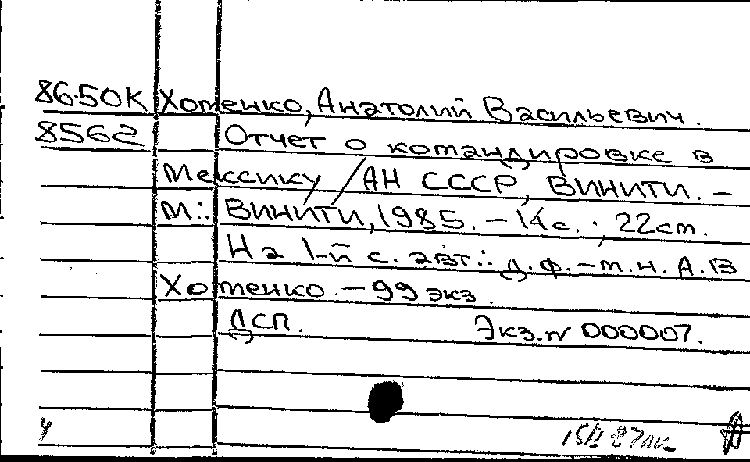 86-50К Хоменко, Анатолий Васильевич.
8562 Отчет о командировке в
Мексику / АН СССР, ВИНИТИ. –
М.: ВИНИТИ, 1985. – 14 с. ; 22 см.
На 1-й с. авт.: д.ф.-м.н. А.В
Хоменко. – 99 экз.
ДСП. Экз. № 000007.